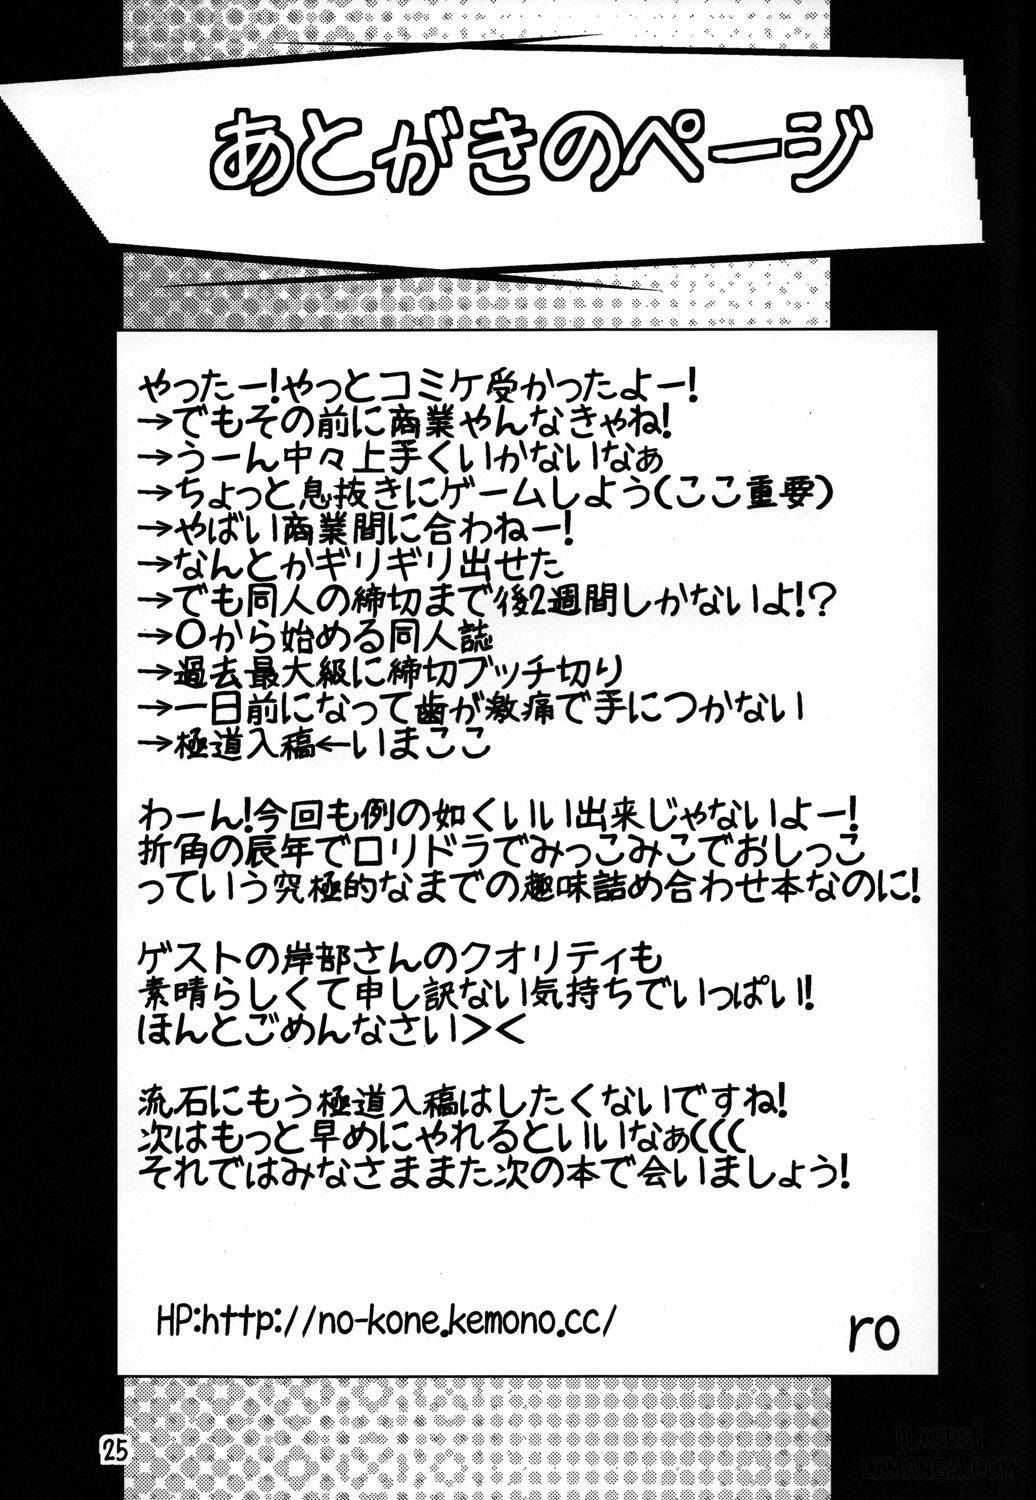 あとがきのページ
やったー!やっとコミケ受かったよー!
→でもその前に商業やんなきゃね!
→うーん中々上手くいかないなぁ
→ちょっと息抜きにゲームしよう(ここ重要)
→やばい商業間に合わねー!
→なんとかギリギリ出せた
→でも同人の締切まで後2週間しかないよ!?
→〇から始める同人誌
→過去最大級に締切ブッチ切り
→一日前になって歯が激痛で手につかない
→極道入稿←いまここ
わーん!今回も例の如くいい出来じゃないよー!
折角の辰年でロリドラでみっこみこでおしっこ
っていう究極的なまでの趣味詰め合わせ本なのに!
ゲストの岸部さんのクオリティも
素晴らしくて申し訳ない気持ちでいっぱい!
ほんとごめんなさい><
流石にもう極道入稿はしたくないですね!
次はもっと早めにやれるといいなぁ(((
それではみなさままた次の本で会いましょう!
HP:http://no-kone.kemono.cc/
ro
25
[LXERS]
LXMANGA.COM